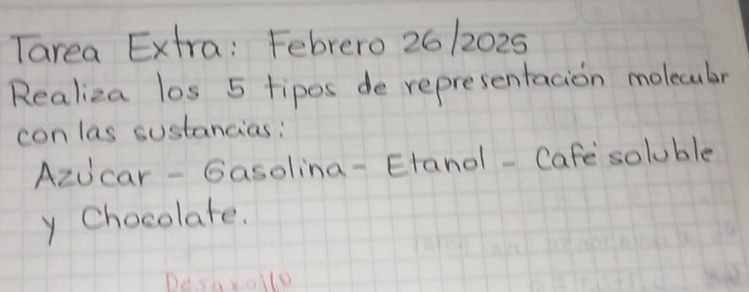 Tarea Extra: Febrero 26/2025
Realiza los 5 tipos de representación molecular
con las sustancias:
Azúcar - Gasolina - Etanol - Café soluble
y Chocolate.
Desarollo